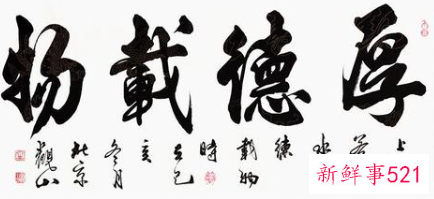 厚德載物
上
若
水
德
載物
時
亥
冬月
觀山
新鲜事521